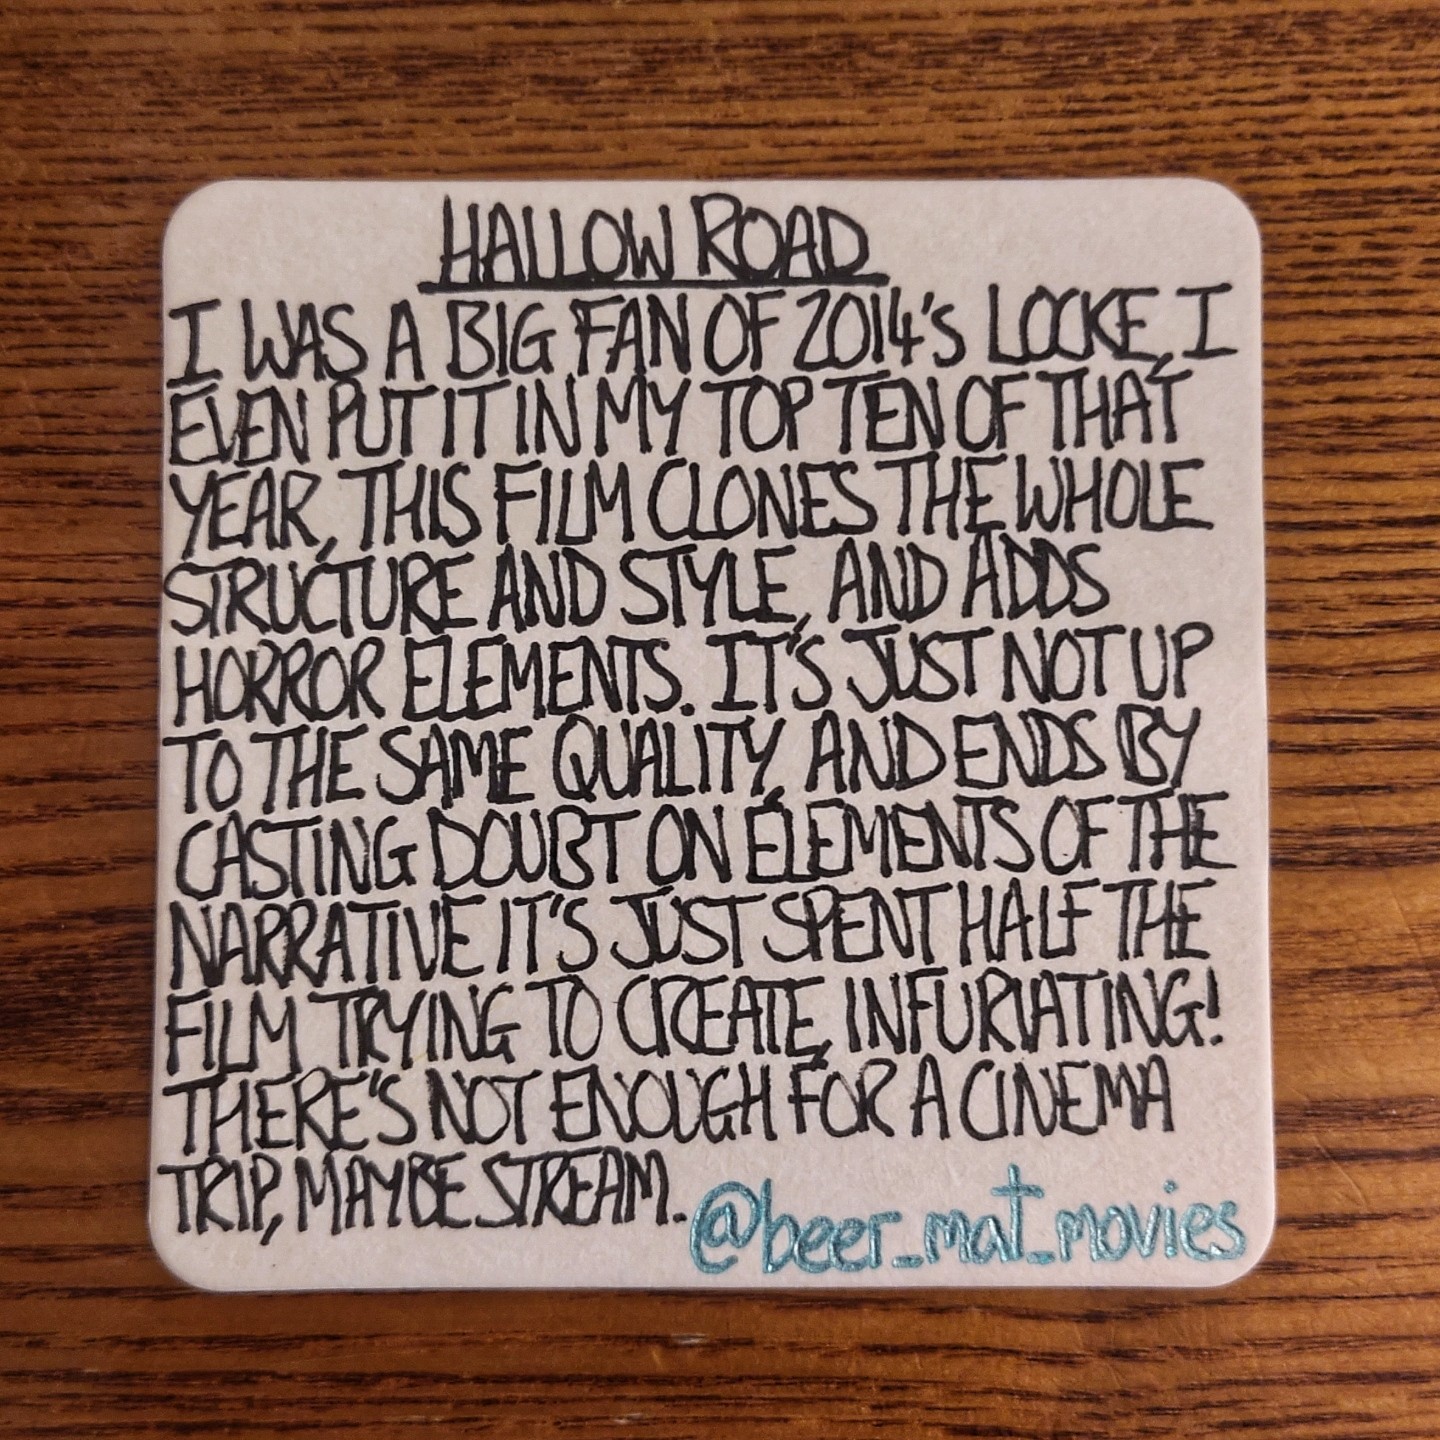 HALLOW ROAD
I WAS A BIG FAN OF 2014'S LOCKE, I
EVEN PUT IT IN MY TOP TEN OF THAT
YEAR, THIS FILM CLONES THE WHOLE
STRUCTURE AND STYLE, AND ADDS
HORROR ELEMENTS. IT'S JUST NOT UP
TO THE SAME QUALITY, AND ENDS BY
CASTING DOUBT ON ELEMENTS OF THE
NARRATIVE IT'S JUST SPENT HALF THE
FILM TRYING TO CREATE, INFURIATING!
THERE'S NOT ENOUGH FOR A CINEMA
TRIP, MAYBE STREAM.
@beer_mat_movies